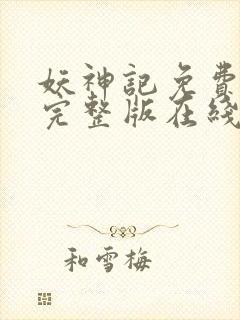 妖神記免費
完整版在綫
和雪梅